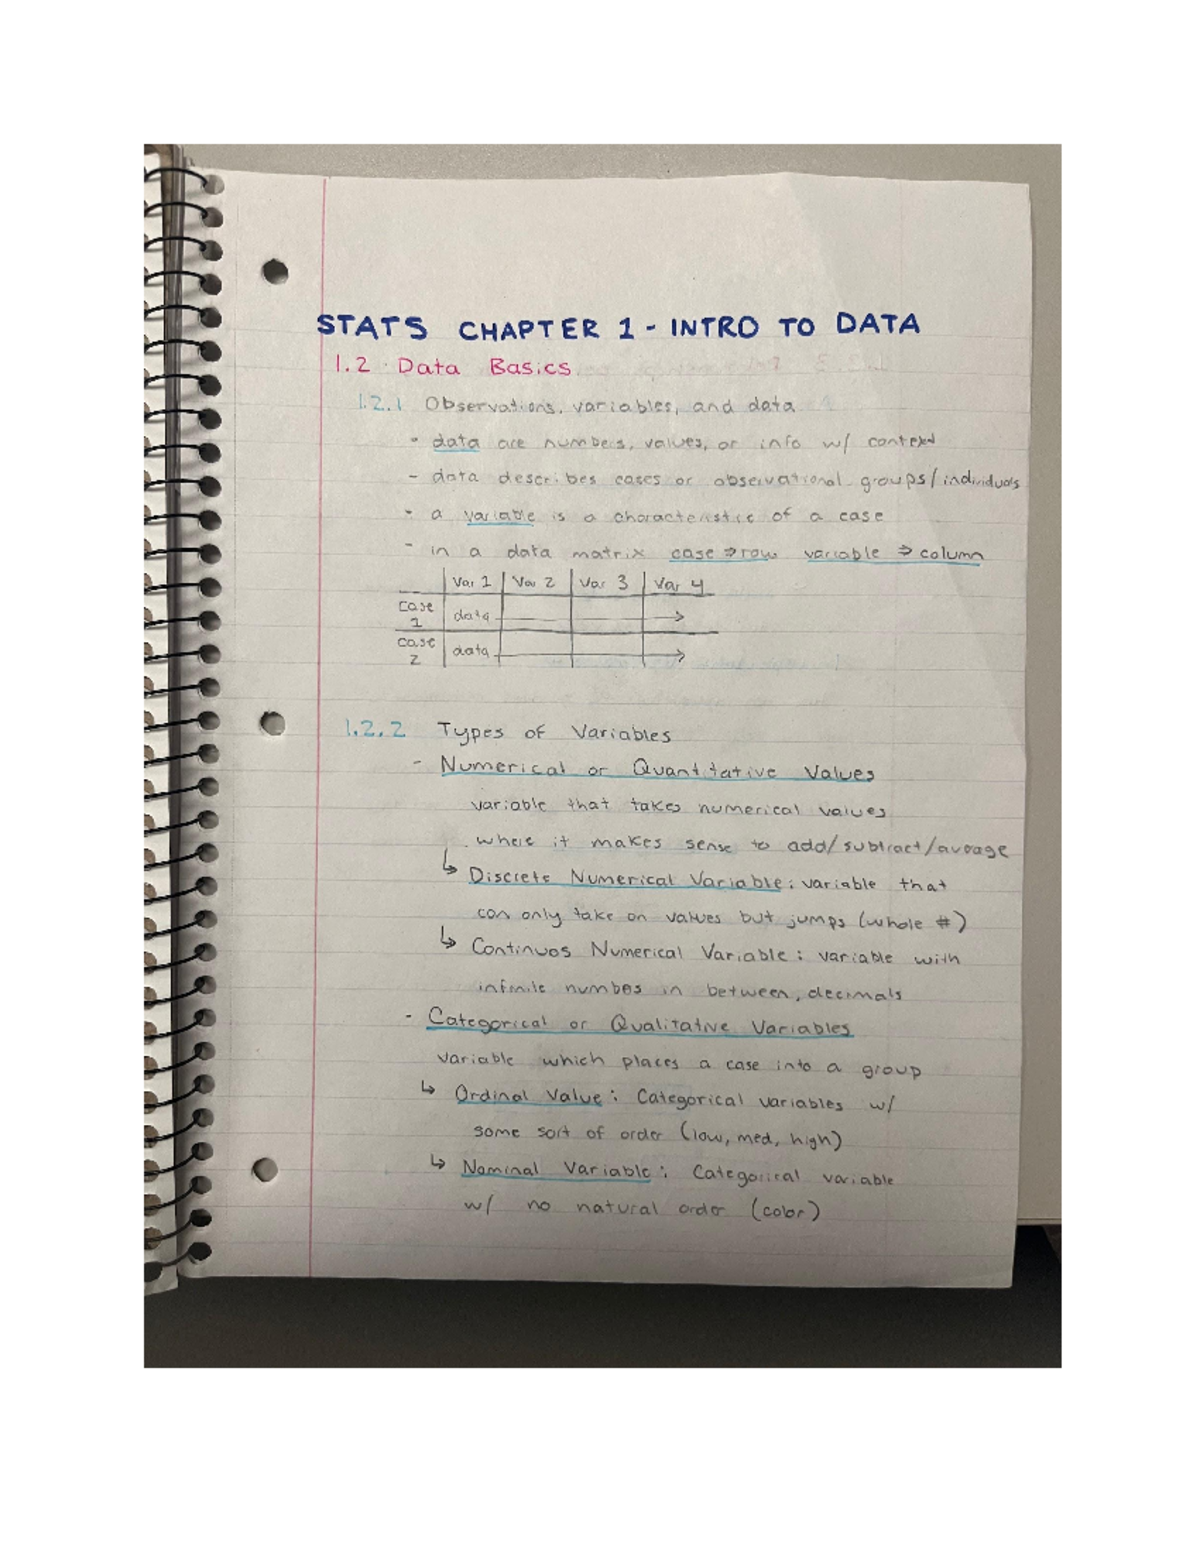 STATS CHAPTER 1 - INTRO TO DATA
1.2 Data Basics
1.2.1 Observations, variables, and data
- data are numbers, values, or info w/ context
- data describes cases or observational groups/individuals
- a variable is a characteristic of a case
- in a data matrix case ⇒ row variable ⇒ column
Var 1 Var 2 Var 3 Var 4
case 1 data →
case 2 data →
1.2.2 Types of Variables
- Numerical or Quantitative Values
variable that takes numerical values
where it makes sense to add/subtract/average
↳ Discrete Numerical Variable: variable that
can only take on values but jumps (whole #)
↳ Continuos Numerical Variable: variable with
infinite numbes in between, decimals
- Categorical or Qualitative Variables
variable which places a case into a group
↳ Ordinal Value: Categorical variables w/
some sort of order (low, med, high)
↳ Nominal Variable: Categorical variable
w/ no natural order (color)